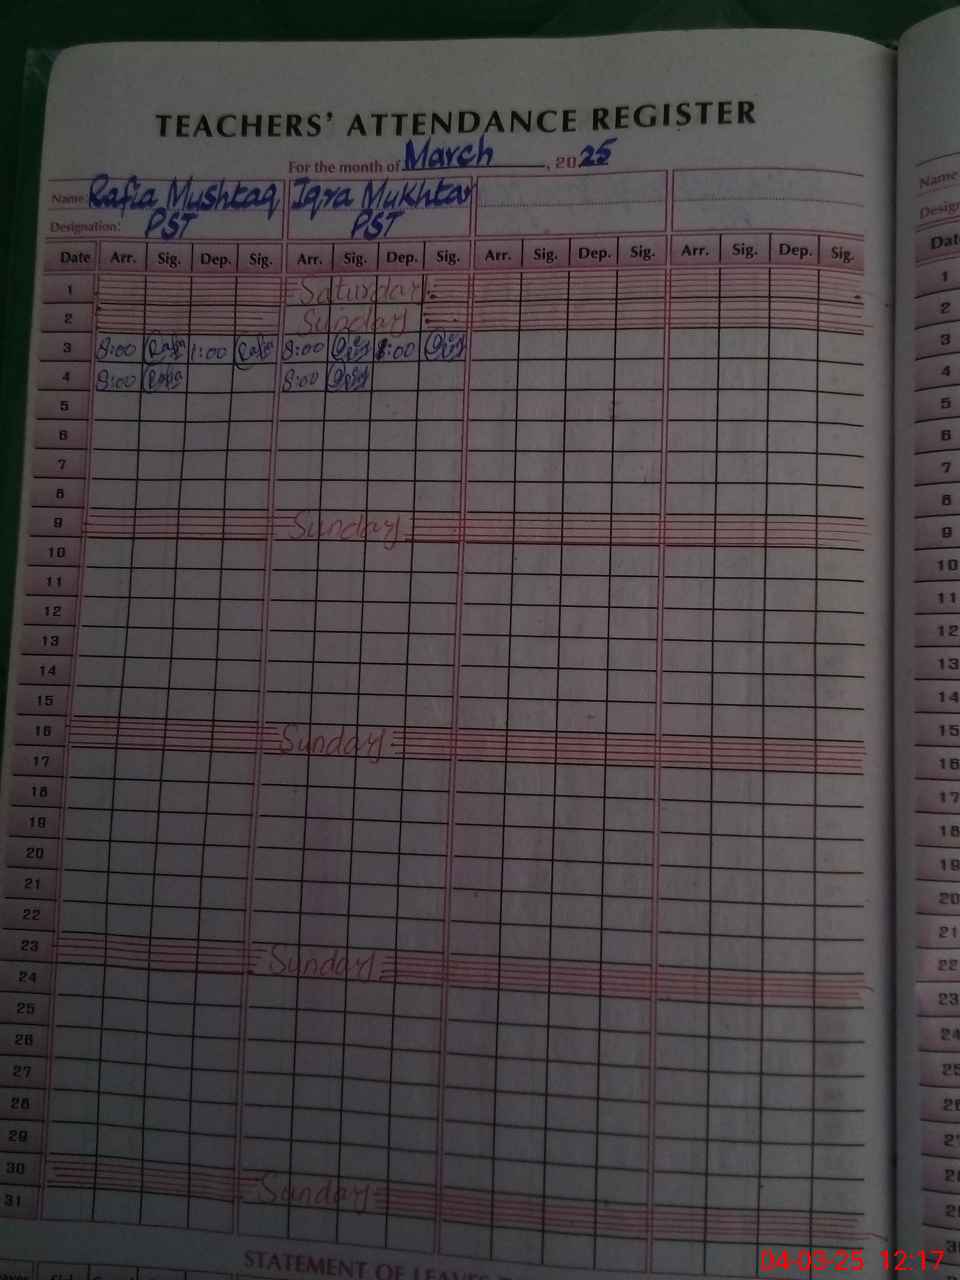 TEACHERS' ATTENDANCE REGISTER
For the month of March, 2025
Name Rafia Mushtaq Iqra Mukhtar
Designation: PST PST
Date Arr. Sig. Dep. Sig. Arr. Sig. Dep. Sig. Arr. Sig. Dep. Sig. Arr. Sig. Dep. Sig.
1 Saturday
2 Sunday
3 8:00 Rafia 1:00 Rafia 8:00 1:00
4 8:00 Rafia 8:00
5
6
7
8
9 Sunday
10
11
12
13
14
15
16 Sunday
17
18
19
20
21
22
23 Sunday
24
25
26
27
28
29
30 Sunday
31
STATEMENT OF LEAVE
Name
Date
1
2
3
4
5
6
7
8
9
10
11
12
13
14
15
16
17
18
19
20
21
22
23
24
25
04-03-25 12:17